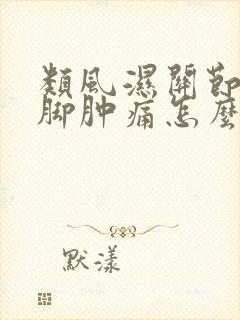 類風濕關節
脚肿痛怎麼
默漾